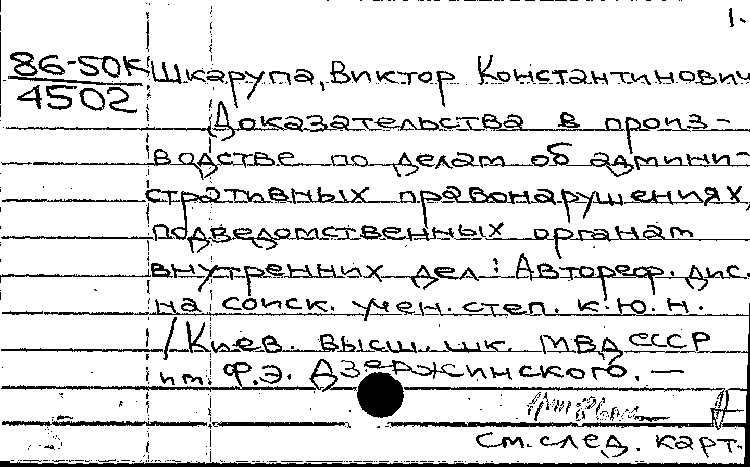 1.
86-50К
4502
Шкарупа, Виктор Константинович
Доказательства в произ-
водстве по делам об админи-
стративных правонарушениях,
подведомственных органам
внутренних дел: Автореф. дис.
на соиск. учен. степ. к.ю.н.
/Киев. высш. шк. МВД СССР
им. Ф.Э. Дзержинского. —
см. след. карт.